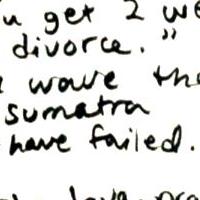 u get 2 we
divorce."
wave the
sumatra
have failed.